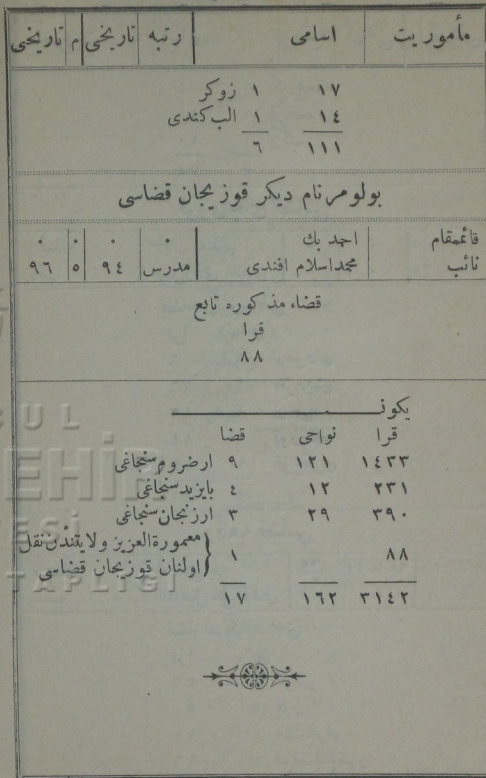 مأموریت اسامی رتبه تاریخی م تاریخی
١٧ ١ زوكر
١٤ ١ الب كندی
١١١ ٦
بولومر نام دیكر قوزیجان قضاسی
قائممقام احمد بك ٠ ٠ ٠ ٠
نائب محمد اسلام افندی مدرس ٩٤ ٥ ٩٦
قضاء مذكوره تابع
قرا
٨٨
یكون
قرا نواحی قضا
١٤٣٣ ١٢١ ٩ ارضروم سنجاغی
٢٣١ ١٢ ٤ بایزید سنجاغی
٣٩٠ ٢٩ ٣ ارزنجان سنجاغی
٨٨ ١ معمورة العزیز ولایتندن نقل
اولنان قوزیجان قضاسی
٣١٤٢ ١٦٢ ١٧